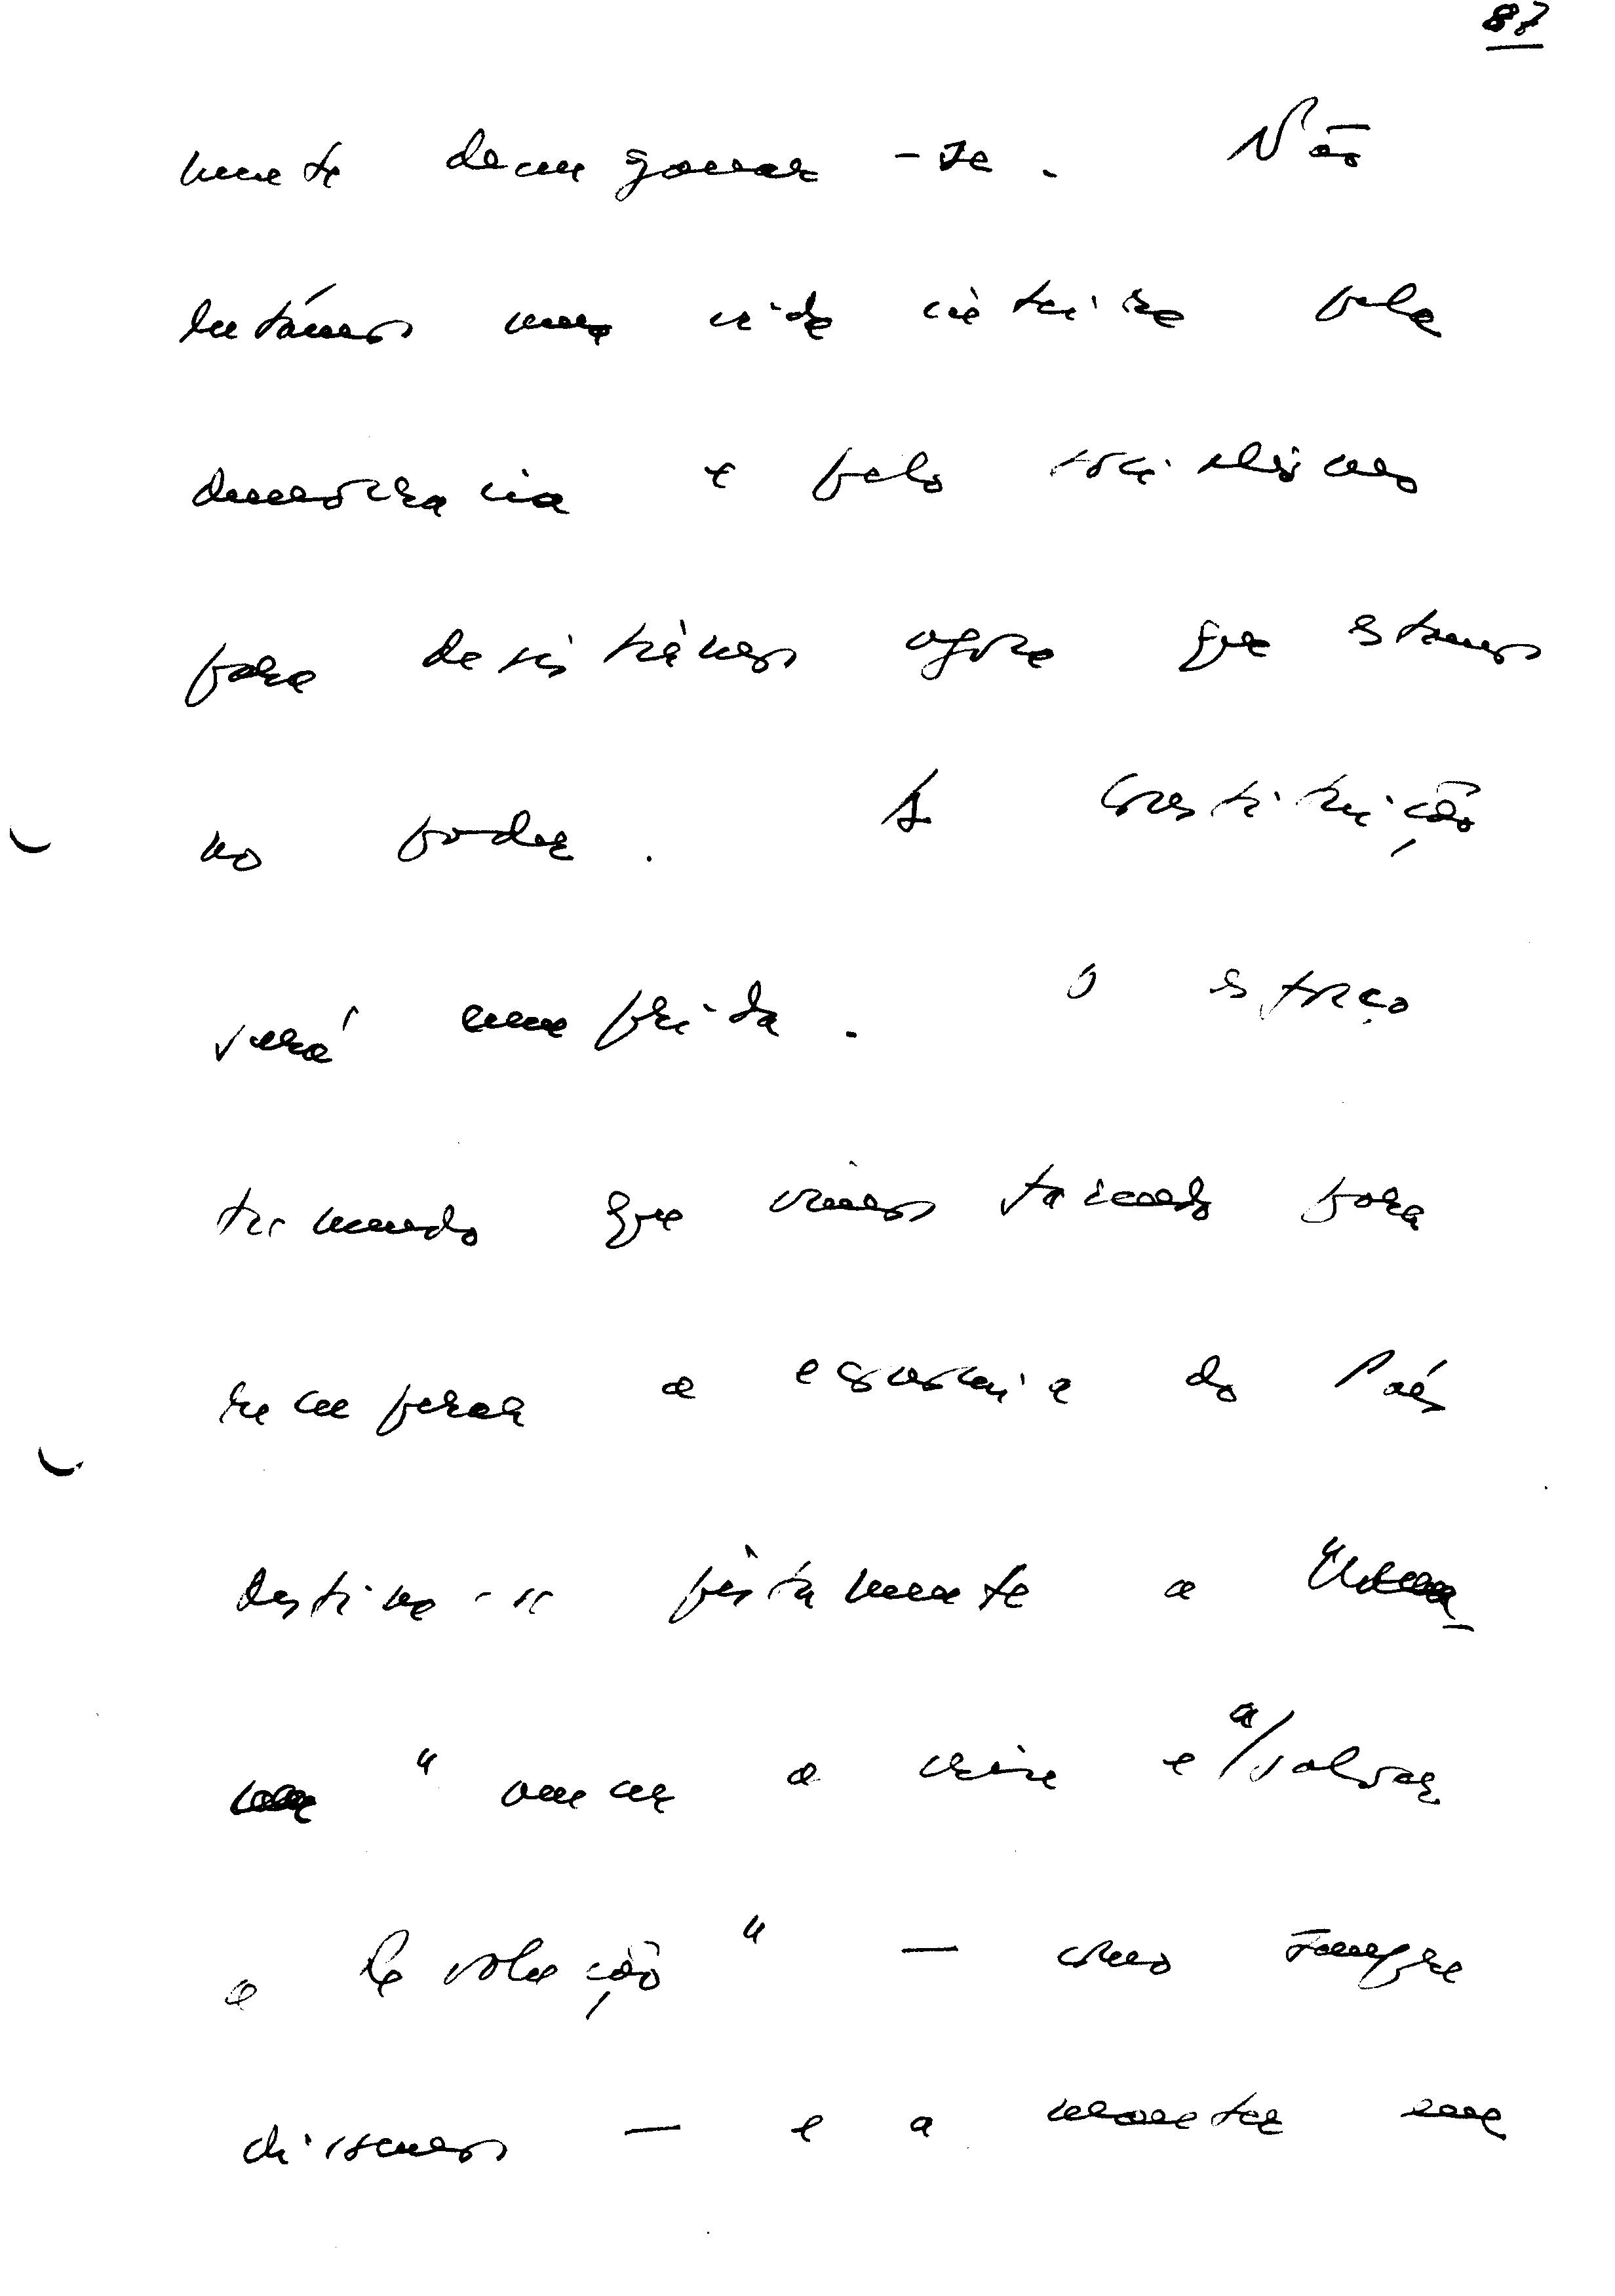 87
mente desenganar-se. Não
lutámos uma vida inteira pela
democracia e pelo socialismo
para desistirmos agora que estamos
no poder. A Constituição
será cumprida. O esforço
tremendo que vimos fazendo para
recuperar a economia do País
destina-se justamente a
"vencer a crise e a/salvar
a Revolução" — como sempre
dissemos — e a manter em